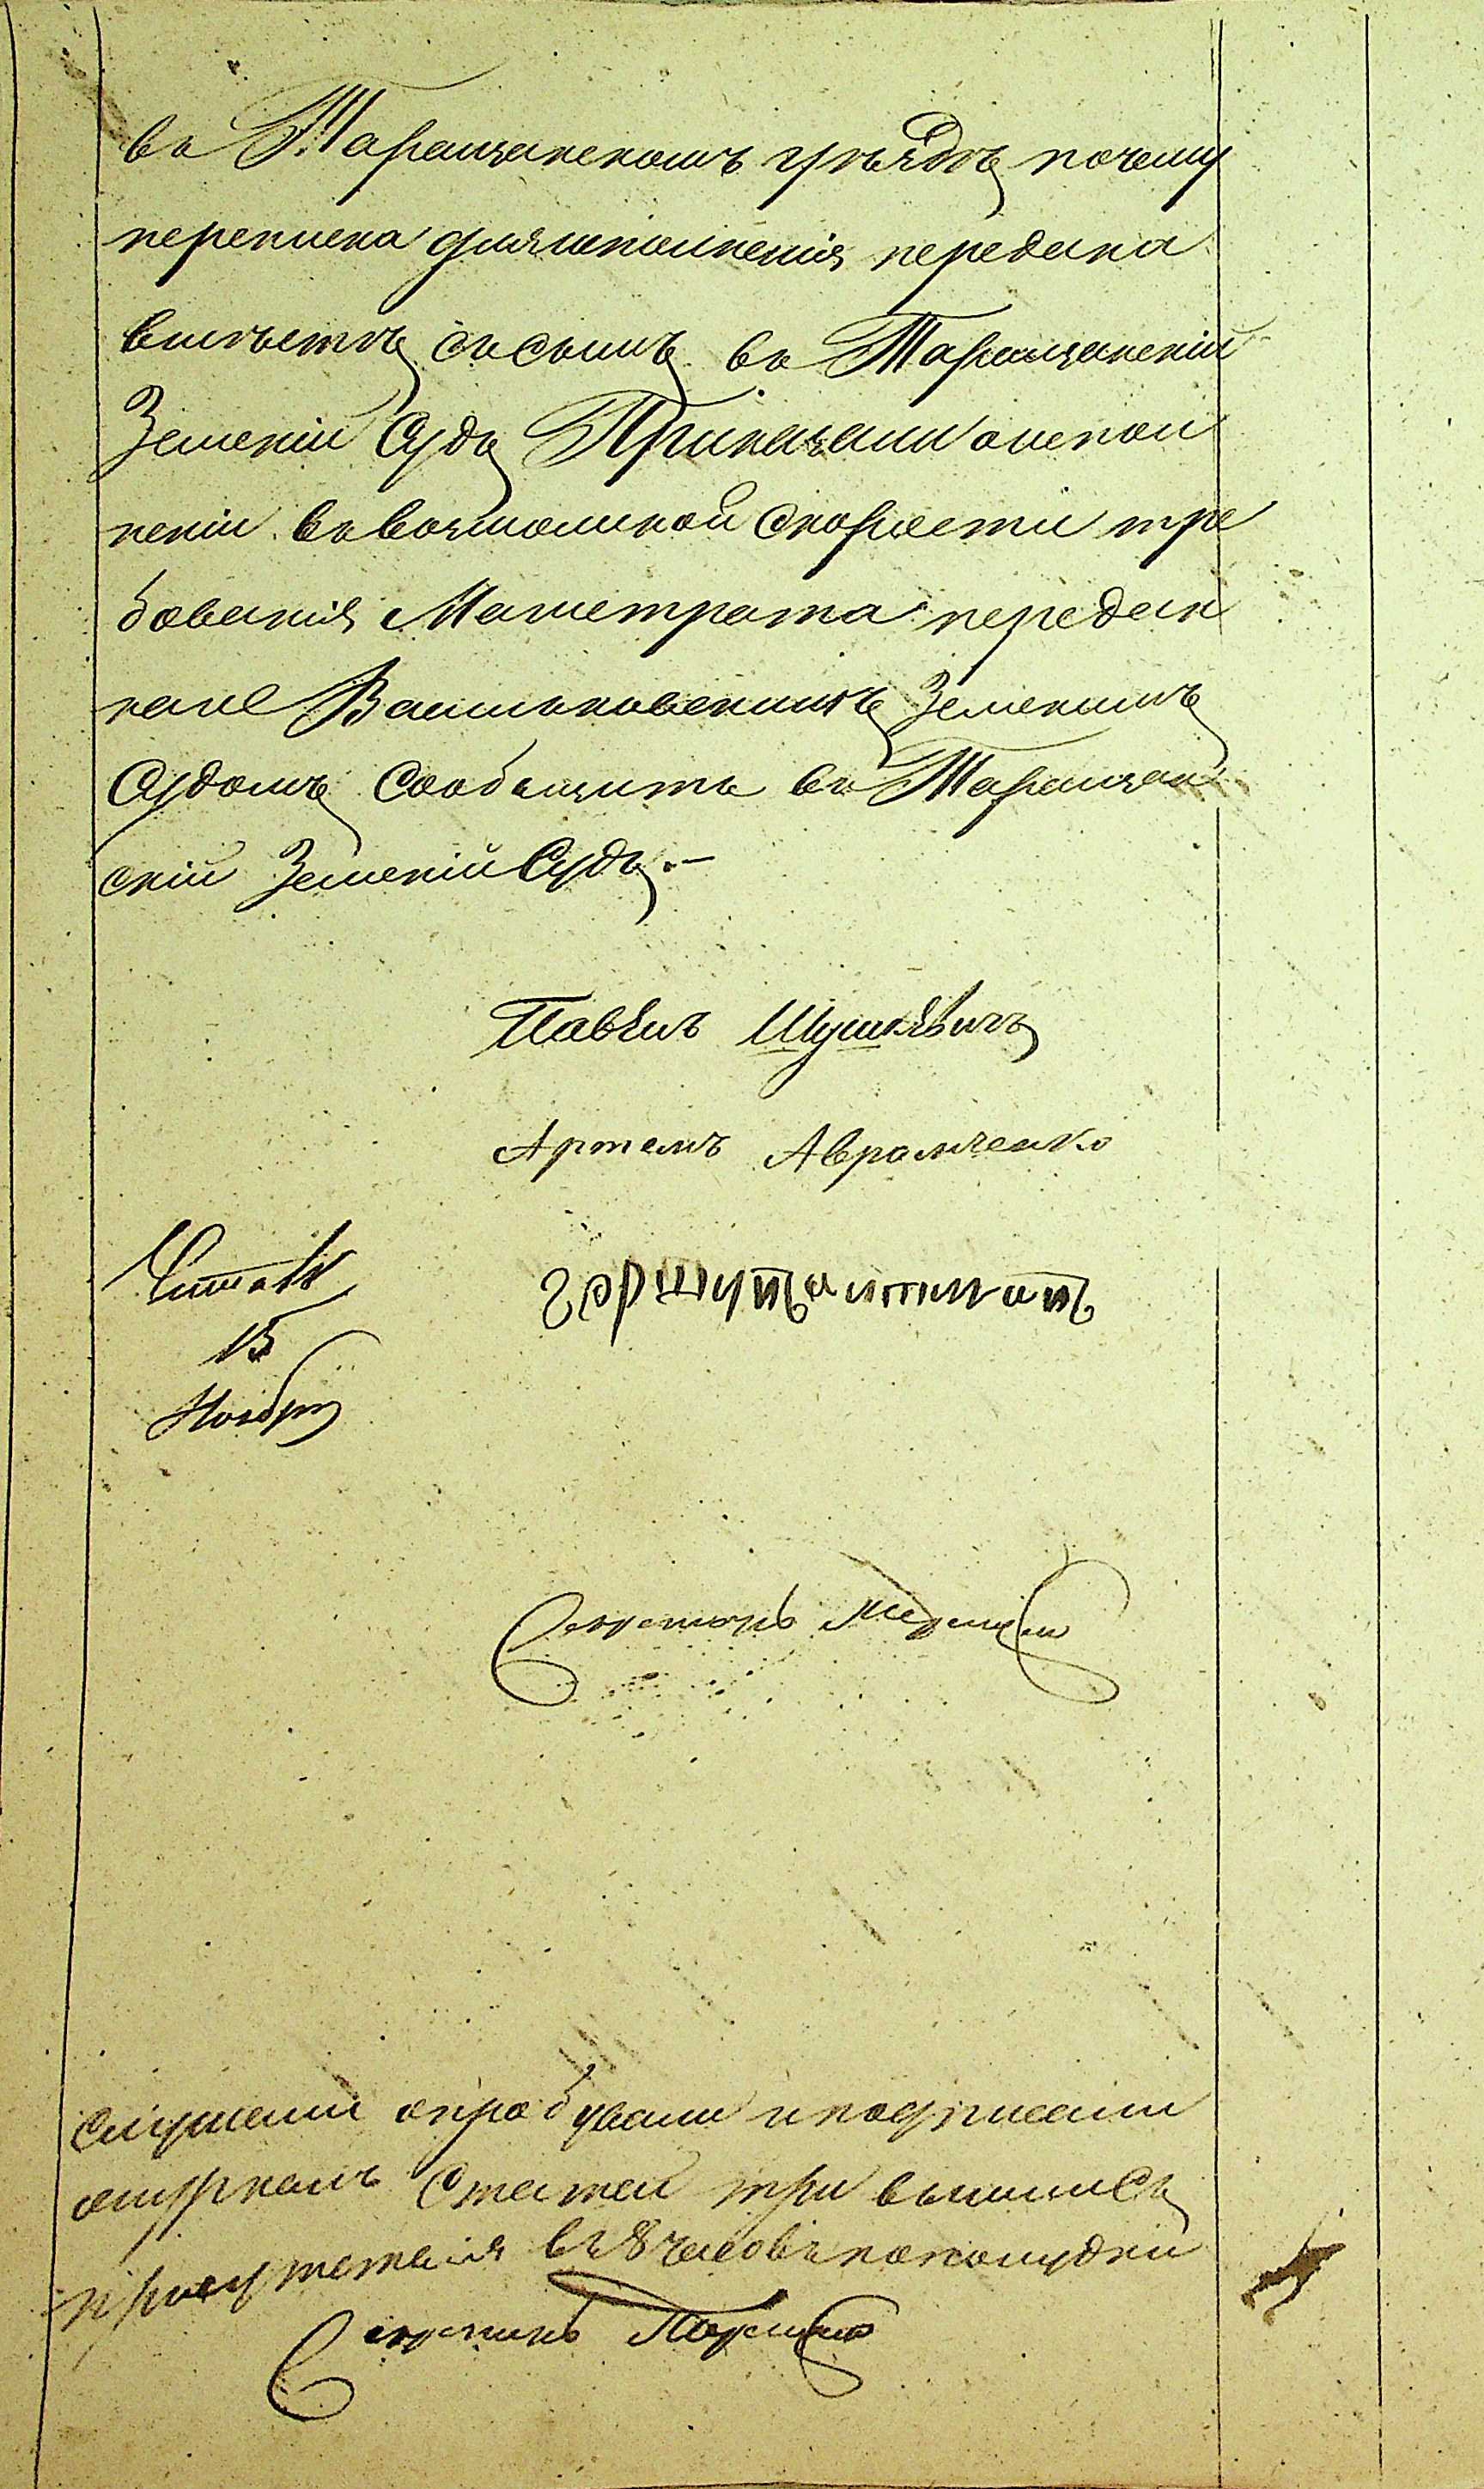 въ Таращанскомъ уѣздѣ почему
переписка для исполненія передана
вмѣстѣ съ симъ въ Таращанскій
Земскій Судъ Приказали о испол
неніи въ возможной скорости тре
бованія Магистрата передан
наго Васильковскимъ Земскимъ
Судомъ сообщить въ Таращан
скій Земскій Судъ.—
Павелъ Шушкѣвичъ
Артемъ Аврамченко
Читалъ
15
Ноября
Секретарь
слушали опробували и подписали
журналъ статей три вышли съ
присутствія въ 8 часовъ по полудни
Секретарь